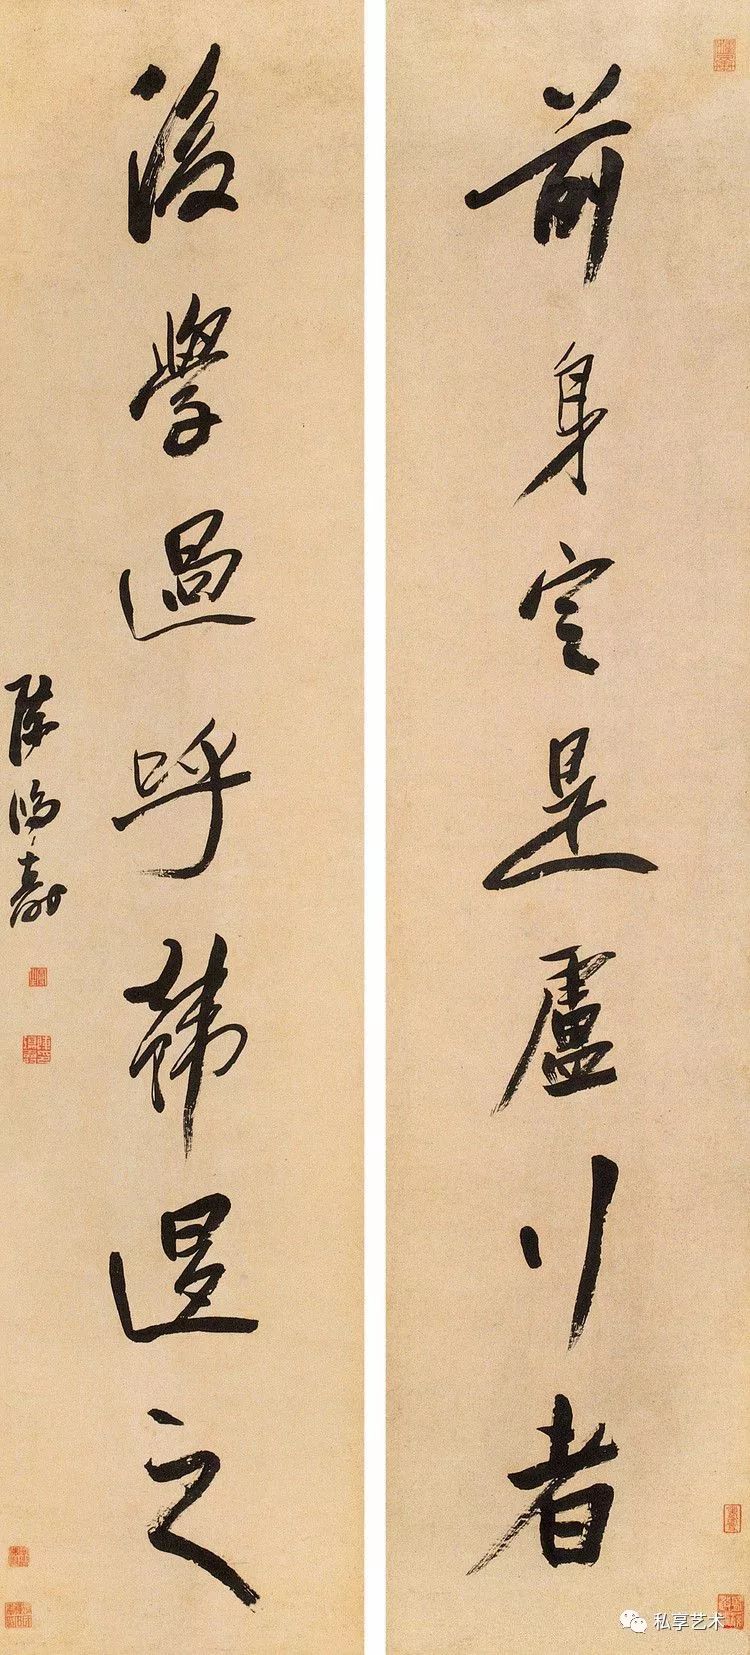 前身定是盧行者
後學過呼韓退之
陳鴻壽
私享艺术